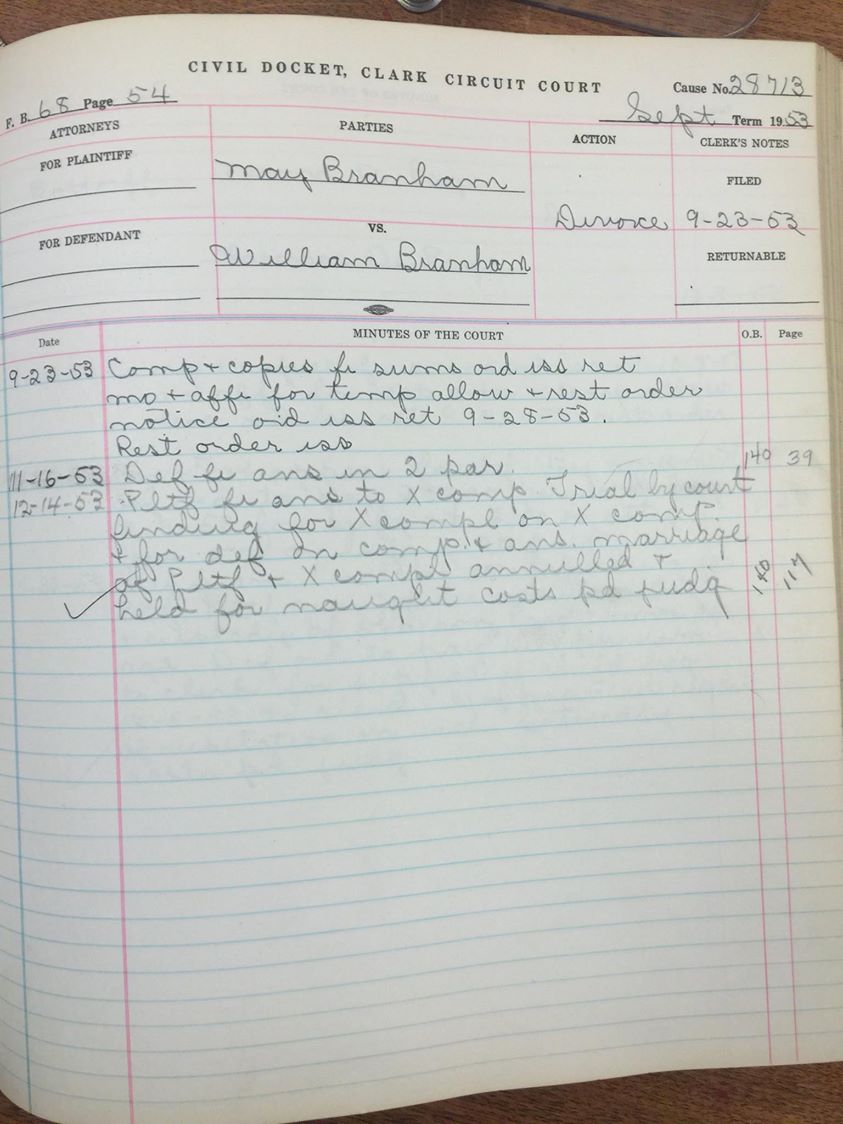 CIVIL DOCKET, CLARK CIRCUIT COURT
F. B. 68 Page 54
Cause No. 28713
Sept Term 1953
ATTORNEYS
PARTIES
ACTION
CLERK'S NOTES
FOR PLAINTIFF
May Branham
FILED
VS.
Divorce
9-23-53
FOR DEFENDANT
William Branham
RETURNABLE
Date
MINUTES OF THE COURT
O.B.
Page
9-23-53 Comp + copies fi sums ord iss ret
mo + affi for temp allow + rest order
notice oid iss ret 9-28-53.
Rest order iss
11-16-53 Def fi ans in 2 par. 140 39
12-14-53 Pltf fi ans to X comp Trial by court
finding for X compl on X comp.
+ for def on comp. + ans. marriage
of Pltf + X compl annulled +
held for naught costs pd judg 140 117